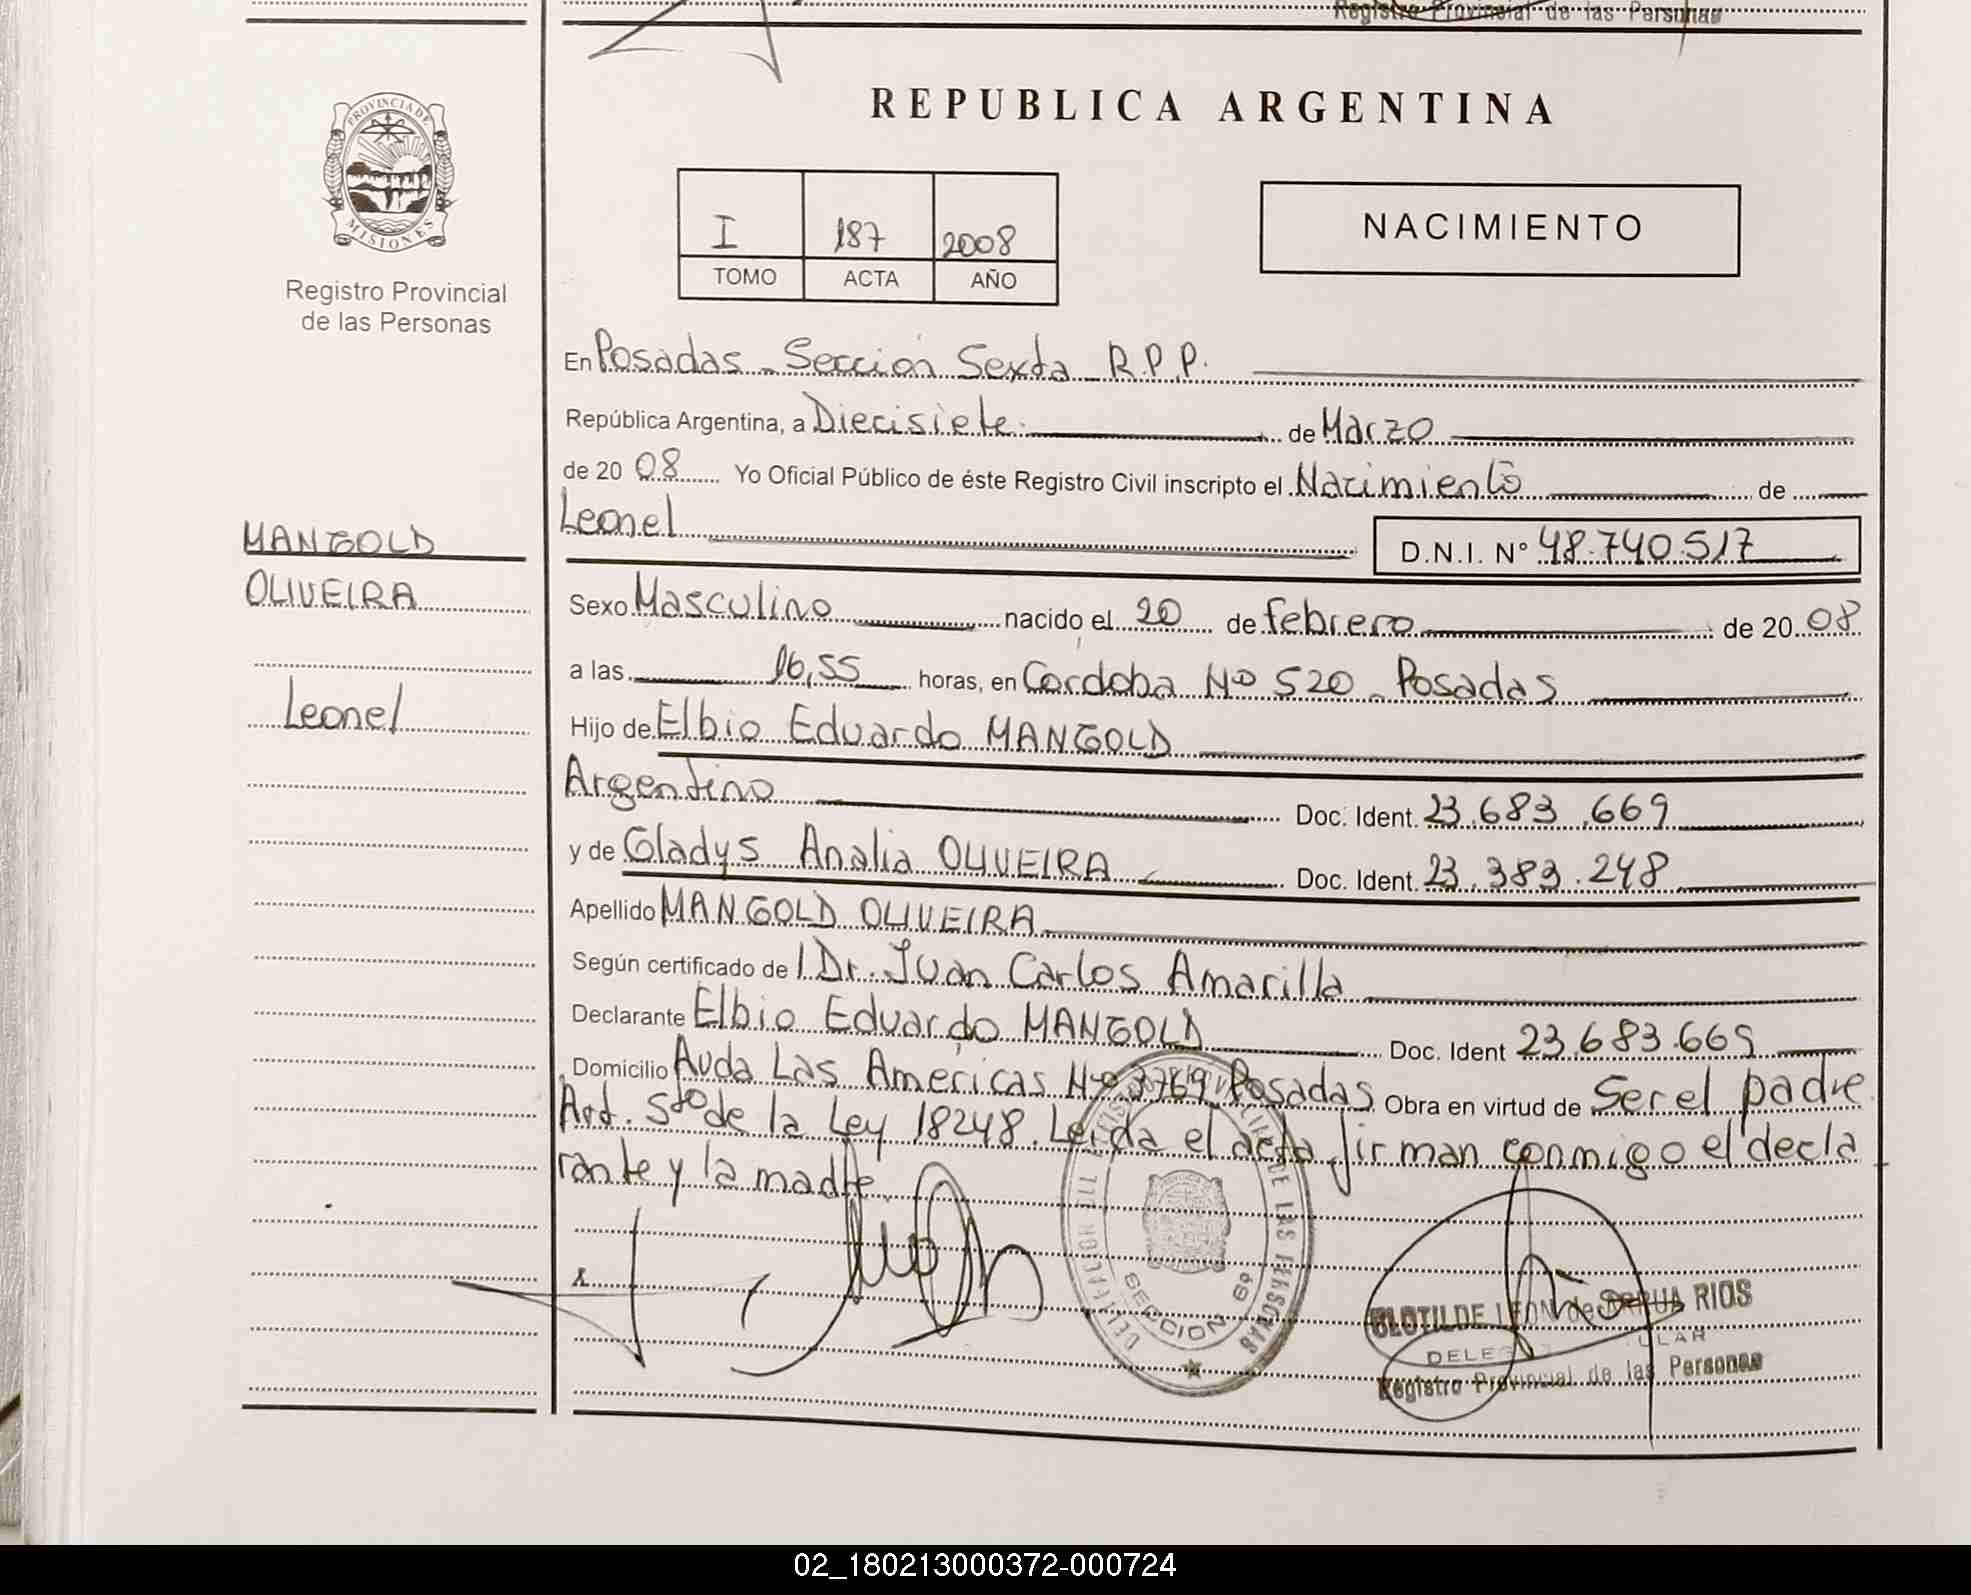 Registro Provincial de las Personas
PROVINCIA DE
MISIONES
Registro Provincial
de las Personas
REPUBLICA ARGENTINA
I 187 2008
TOMO ACTA AÑO
NACIMIENTO
En Posadas - Sección Sexta R.P.P.
República Argentina, a Diecisiete de Marzo
de 20 08 Yo Oficial Público de éste Registro Civil inscripto el Nacimiento de
Leonel D.N.I. Nº 48.740.517
MANGOLD
OLIVEIRA
Leonel
Sexo Masculino nacido el 20 de febrero de 20 08
a las 16,55 horas, en Cordoba Nº 520 - Posadas
Hijo de Elbio Eduardo MANGOLD
Argentino Doc. Ident. 23.683.669
y de Gladys Analia OLIVEIRA Doc. Ident. 23.383.248
Apellido MANGOLD OLIVEIRA
Según certificado de l Dr. Juan Carlos Amarilla
Declarante Elbio Eduardo MANGOLD Doc. Ident 23.683.669
Domicilio Avda Las Americas Nº 3769 Posadas Obra en virtud de Ser el padre
Art. 5to de la Ley 18248. Leida el acta firman conmigo el decla
rante y la madre.
x
DE LAS PERSONAS
SECCION 6º
CLOTILDE LEON de RIOS
Registro Provincial de las Personas
02_180213000372-000724